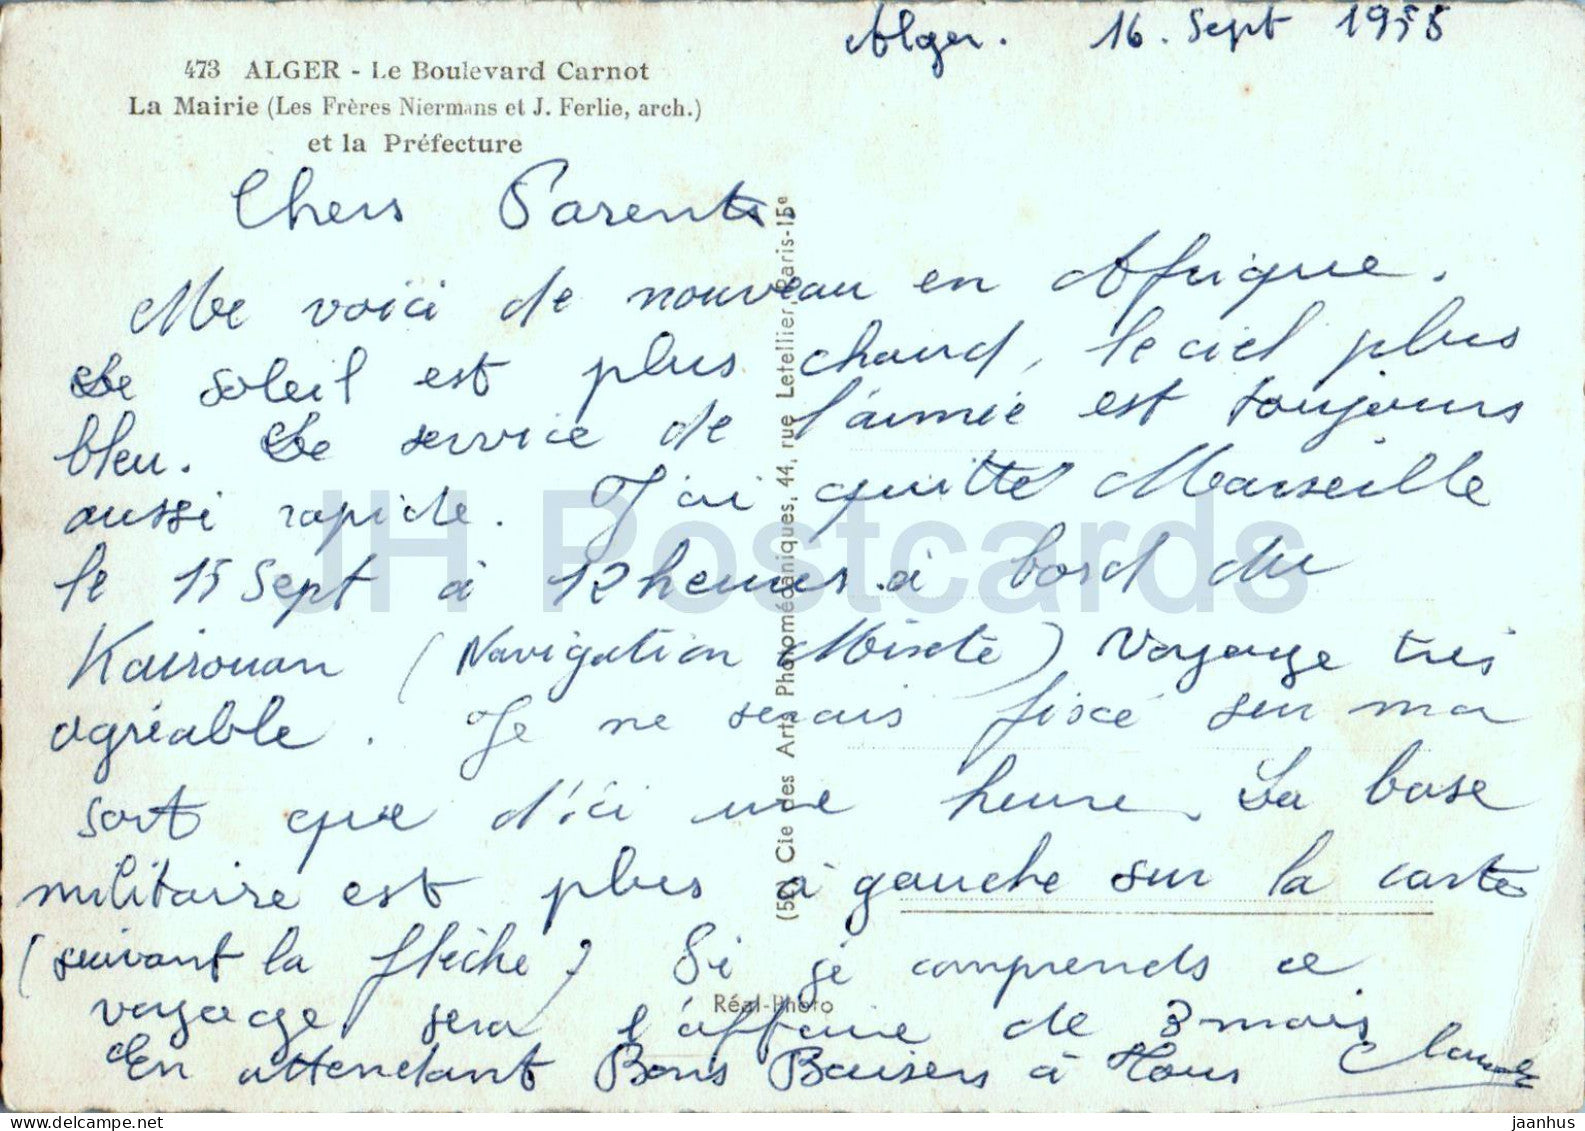 Alger. 16. Sept 1955
473 ALGER - Le Boulevard Carnot
La Mairie (Les Frères Niermans et J. Ferlie, arch.)
et la Préfecture
Chers Parents
Me voici de nouveau en Afrique.
Le soleil est plus chaud, le ciel plus
bleu. Le service de l'armée est toujours
aussi rapide. J'ai quitté Marseille
le 15 Sept à 12 heures à bord du
Kairouan (Navigation Mixte) Voyage très
agréable. Je ne serais fixé sur ma
sort que d'ici une heure. La base
militaire est plus à gauche sur la carte
(suivant la flèche) Si je comprends ce
voyage sera l'affaire de 3 mois
En attendant Bons Baisers à Tous
(55) Cie des Arts Photomécaniques, 44, rue Letellier, Paris-15e
Réal-Photo
IH Postcards
www.delcampe.net
jaanhus